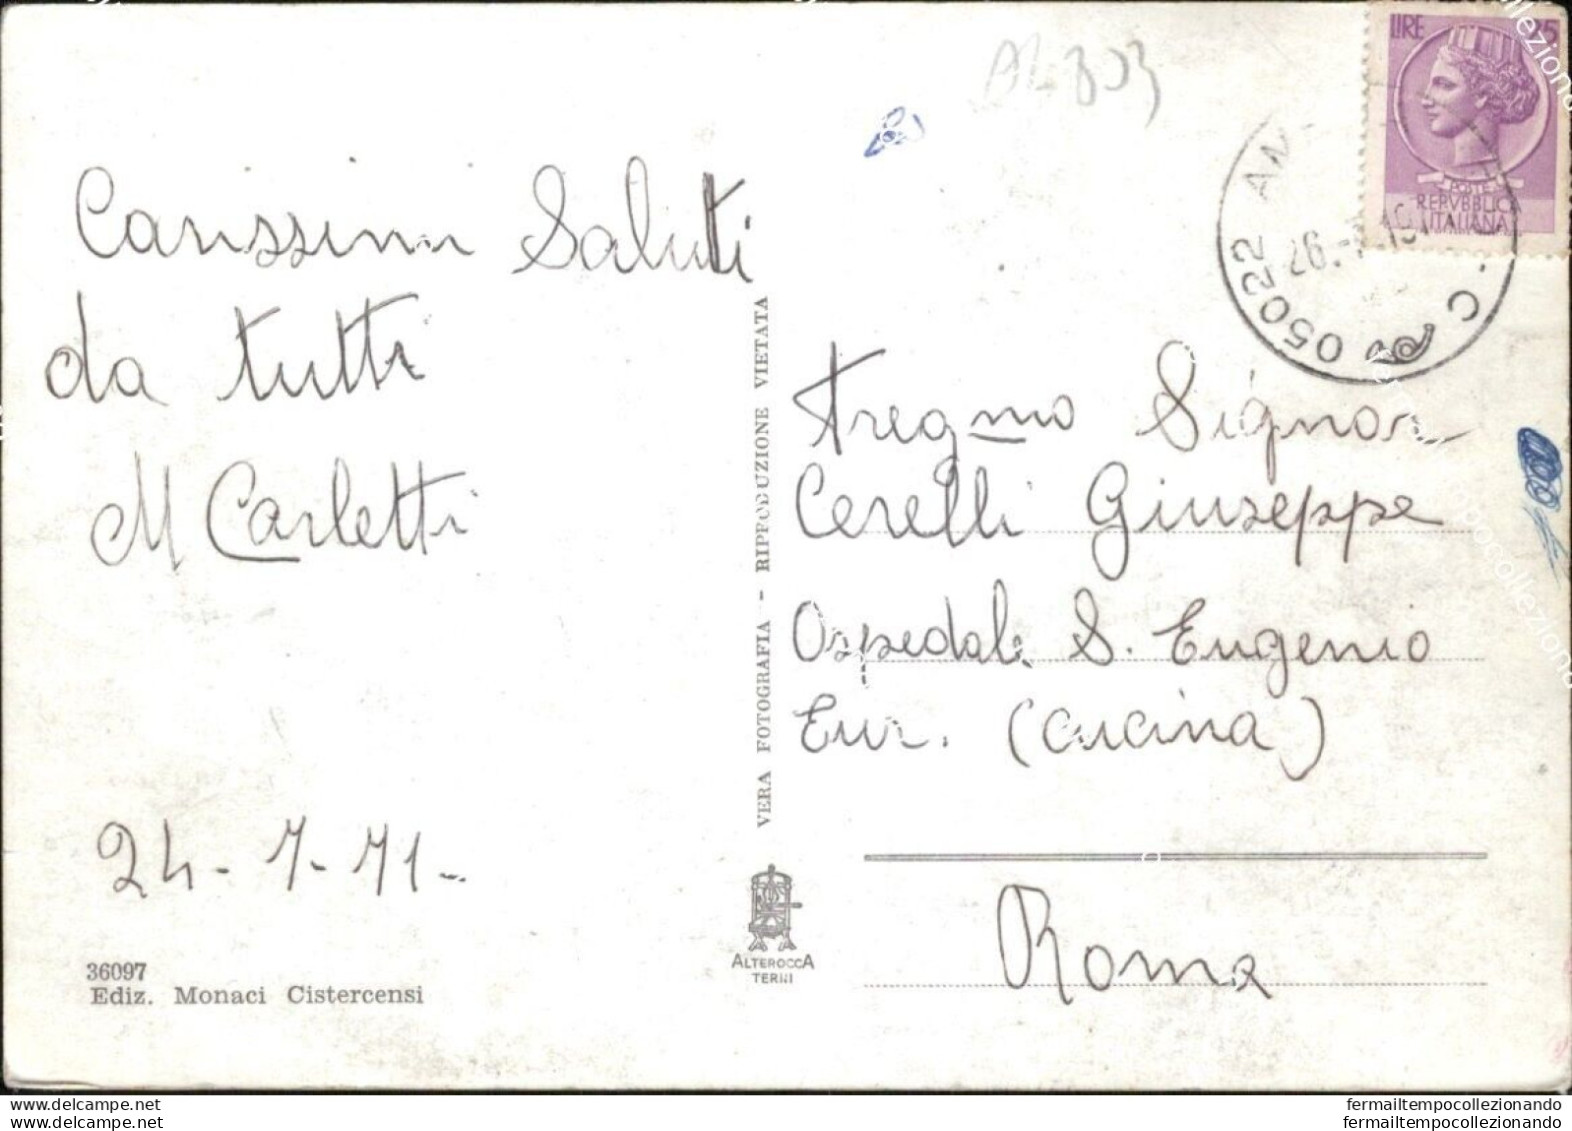 Carissimi Saluti
da tutti
M Carletti
24-7-71-
36097
Ediz. Monaci Cistercensi
VERA FOTOGRAFIA - RIPRODUZIONE VIETATA
ALTEROCCA
TERNI
AL 803
LIRE 25
POSTE
REPVBBLICA
ITALIANA
05022
26.
Aregmo Signor
Cerelli Giuseppe
Ospedale S. Eugenio
Eur. (cucina)
Roma
www.delcampe.net
www.delcampe.net
fermailtempocollezionando
fermailtempocollezionando